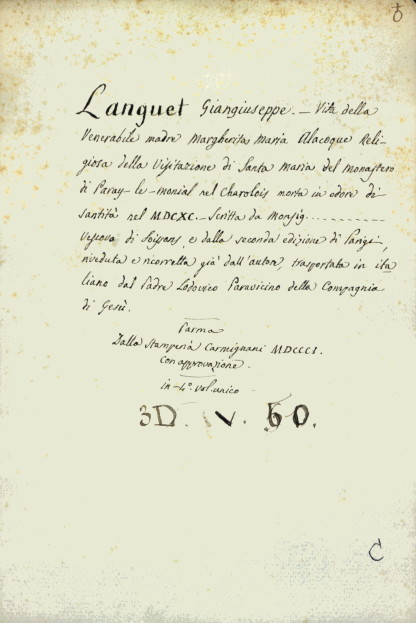 Languet Giangiuseppe. — Vita della
Venerabile madre Margherita Maria Alacoque Reli-
giosa della Visitazione di Santa Maria del Monastero
di Paray-le-monial nel Charolois morta in odore di
santità nel MDCXC. — Scritta da Monsig...........
Vescovo di Soissons, e dalla seconda edizione di Parigi,
riveduta e ricorretta già dall'autore, trasportata in ita
liano dal Padre Lodovico Paravicino della Compagnia
di Gesù.
Parma
Dalla Stamperia Carmignani MDCCCI.
Con approvazione.
in-4°. vol. unico
3D. V. 60.
C